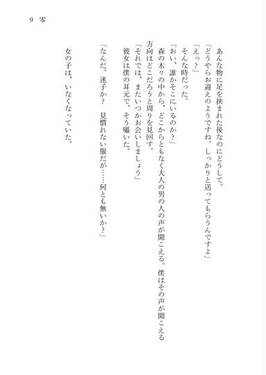 あんな物に足を挟まれた後なのにどうして。
「どうやらお迎えのようですね、しっかりと送ってもらうんですよ」
「えっ？」
そんな時だった。
「おい、誰かそこにいるのか？」
森の木々の中から、どこからともなく大人の男の人の声が聞こえる。僕はその声が聞こえる
方向はどこだろうと周りを見回す。
「それでは、またいつかお会いしましょう」
彼女は僕の耳元で、そう囁いた。
「なんだ。迷子か？　見慣れない服だが……何とも無いか？」
女の子は、いなくなっていた。
9　零